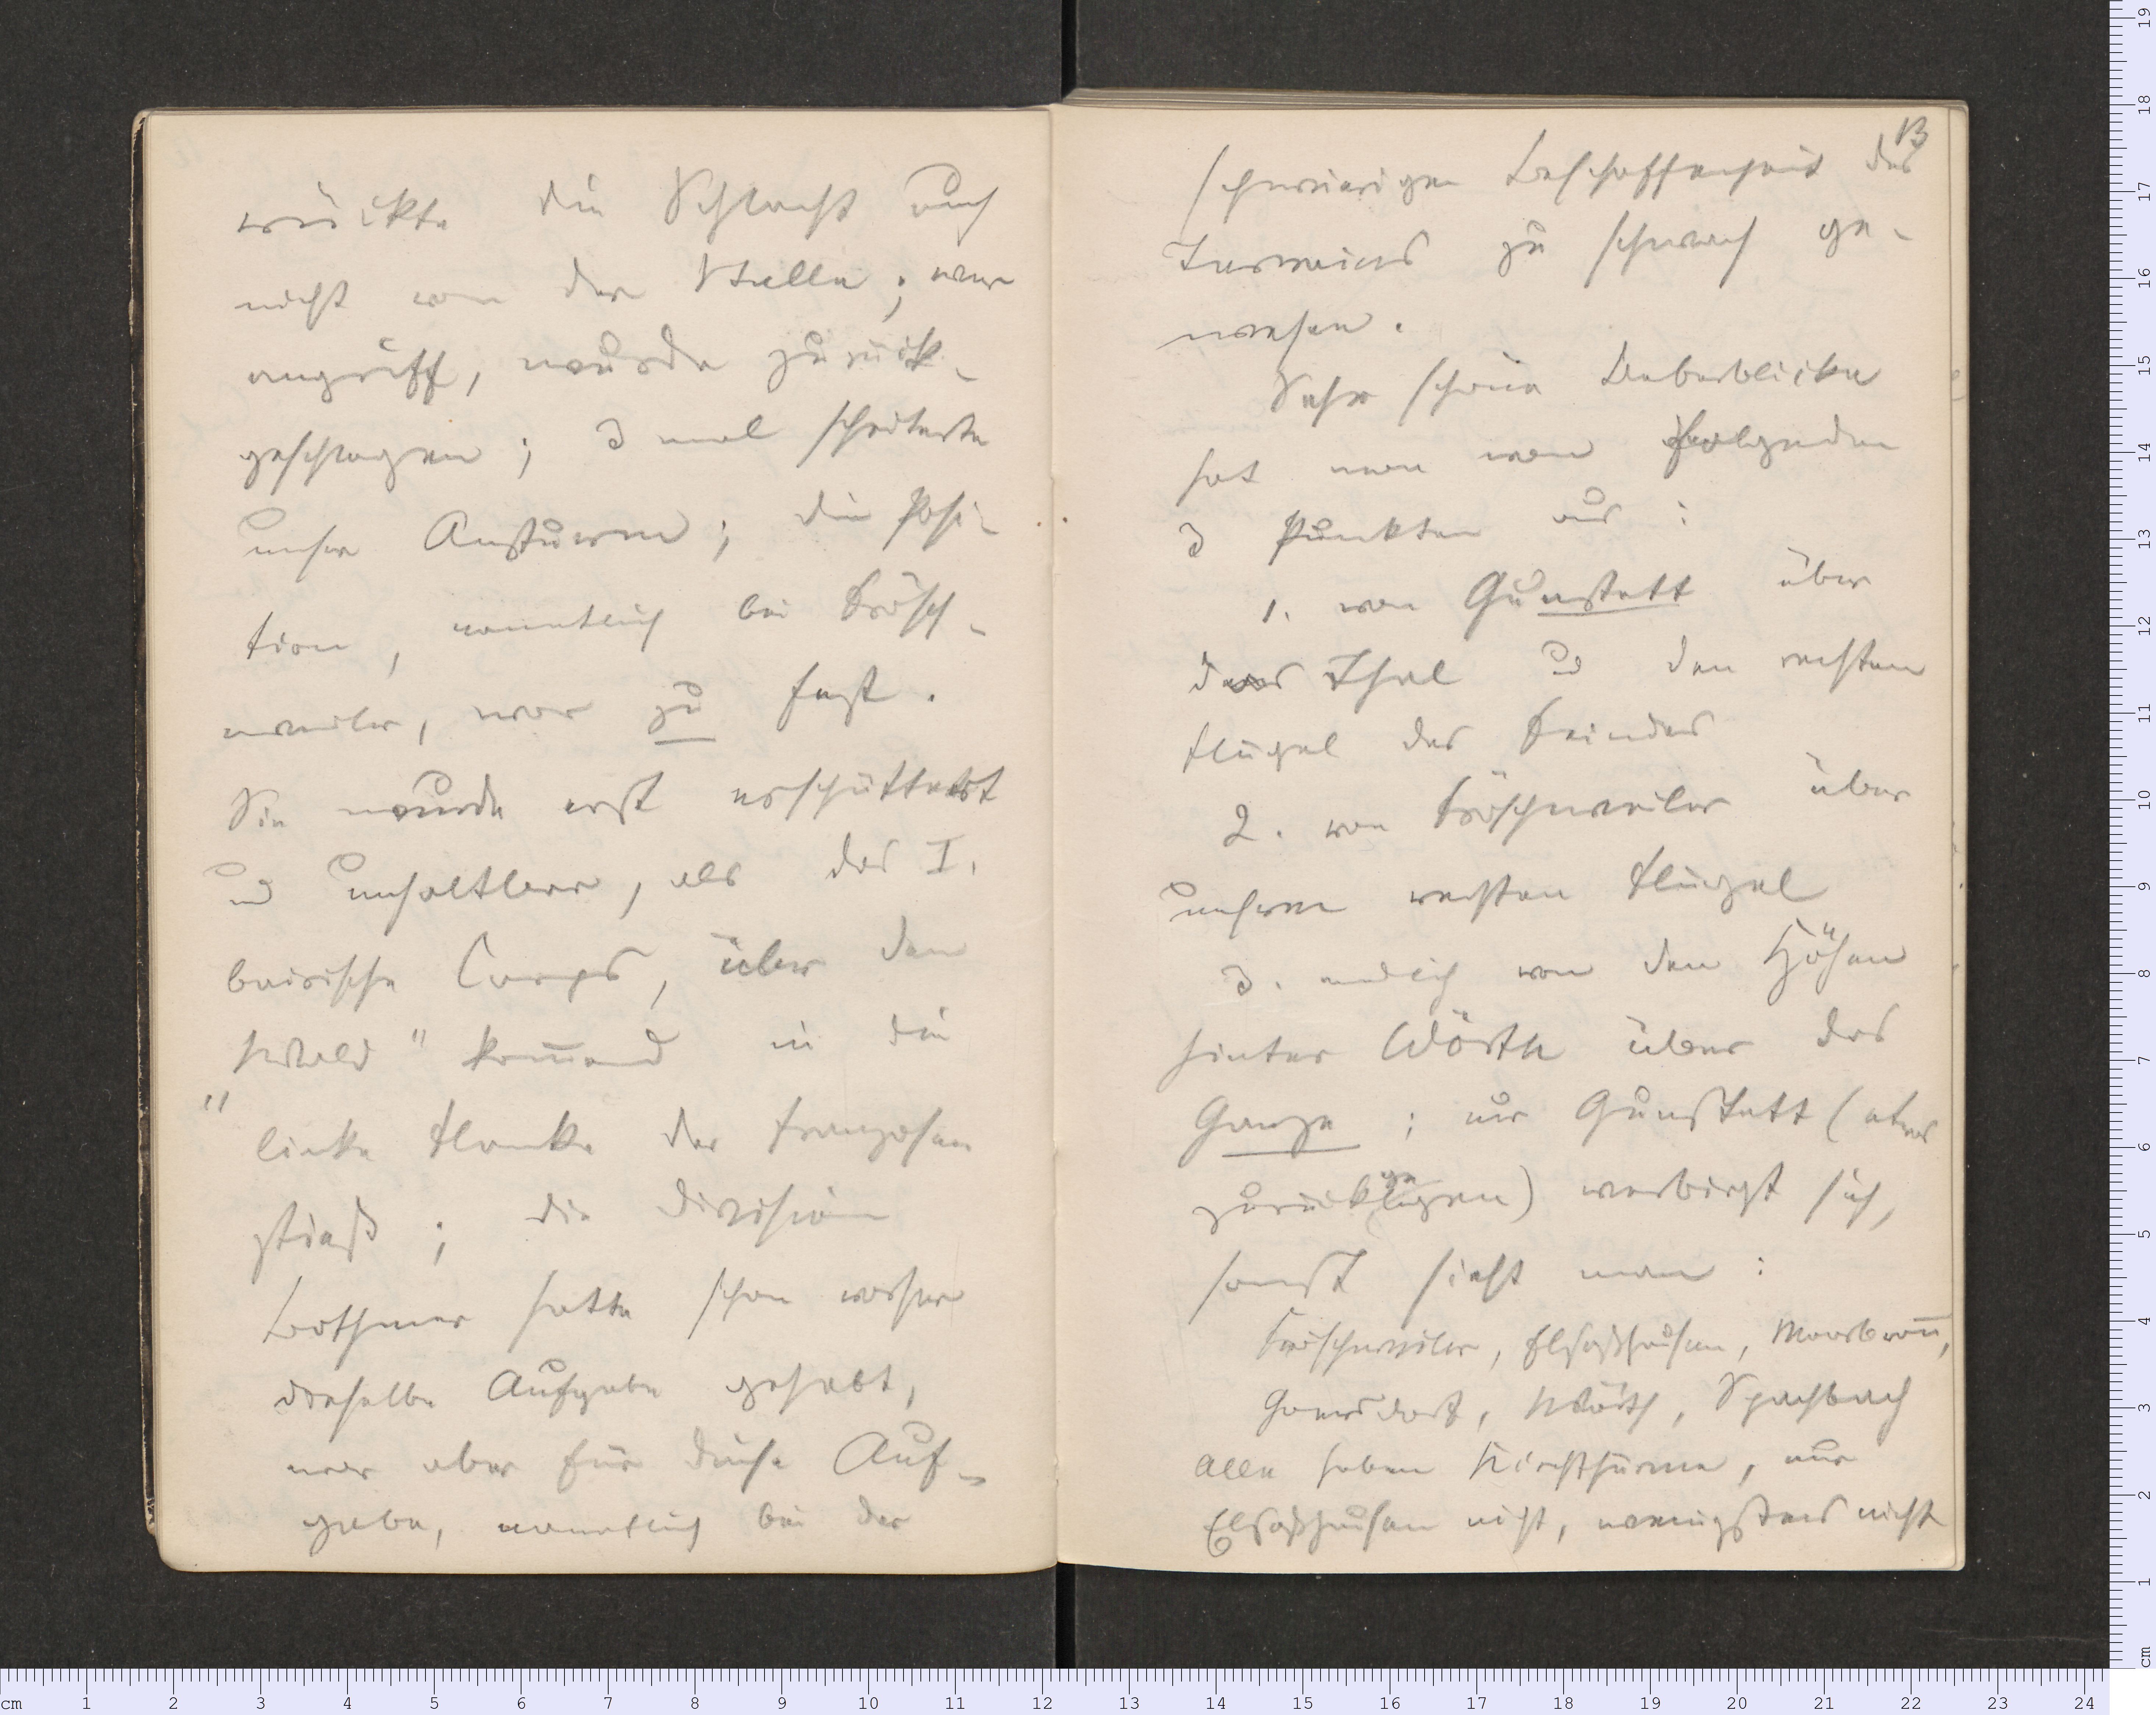 rückte die Schlacht auch
nicht von der Stelle; wer
angriff, wurde zurück-
geschlagen; 3 mal scheiterte
unser Ansturm; die Posi-
tion, namentlich bei Frösch-
weiler, war zu fest.
Sie wurde erst erschüttert
und unhaltbar, als das I.
bairische Corps, über den
Wald" komend in die
"
linke Flanke der Franzosen
stieß; die Division
Bothmer hatte schon vorher
dieselbe Aufgabe gehabt,
war aber für diese Auf-
gabe, namentlich bei der
13
schwierigen Beschaffenheit des
Terrains zu schwach ge-
wesen.
Sehr schöne Ueberblicke
hat man von folgenden
3 Punkten aus:
1. von Gunstett über
das Thal und den rechten
Flügel des Feindes
2. von Fröschweiler über
unsren rechten Flügel
3. endlich von den Höhen
hinter Wörth über das
Ganze; nur Gunstett (etwas
zurückgelegen) verbirgt sich,
sonst sieht man:
Fröschweiler, Elsaßhausen, Morsbroñ,
Goersdorf, Wörth, Spachbach
Alle haben Kirchthürme, nur
Elsaßhausen nicht, wenigstens nicht